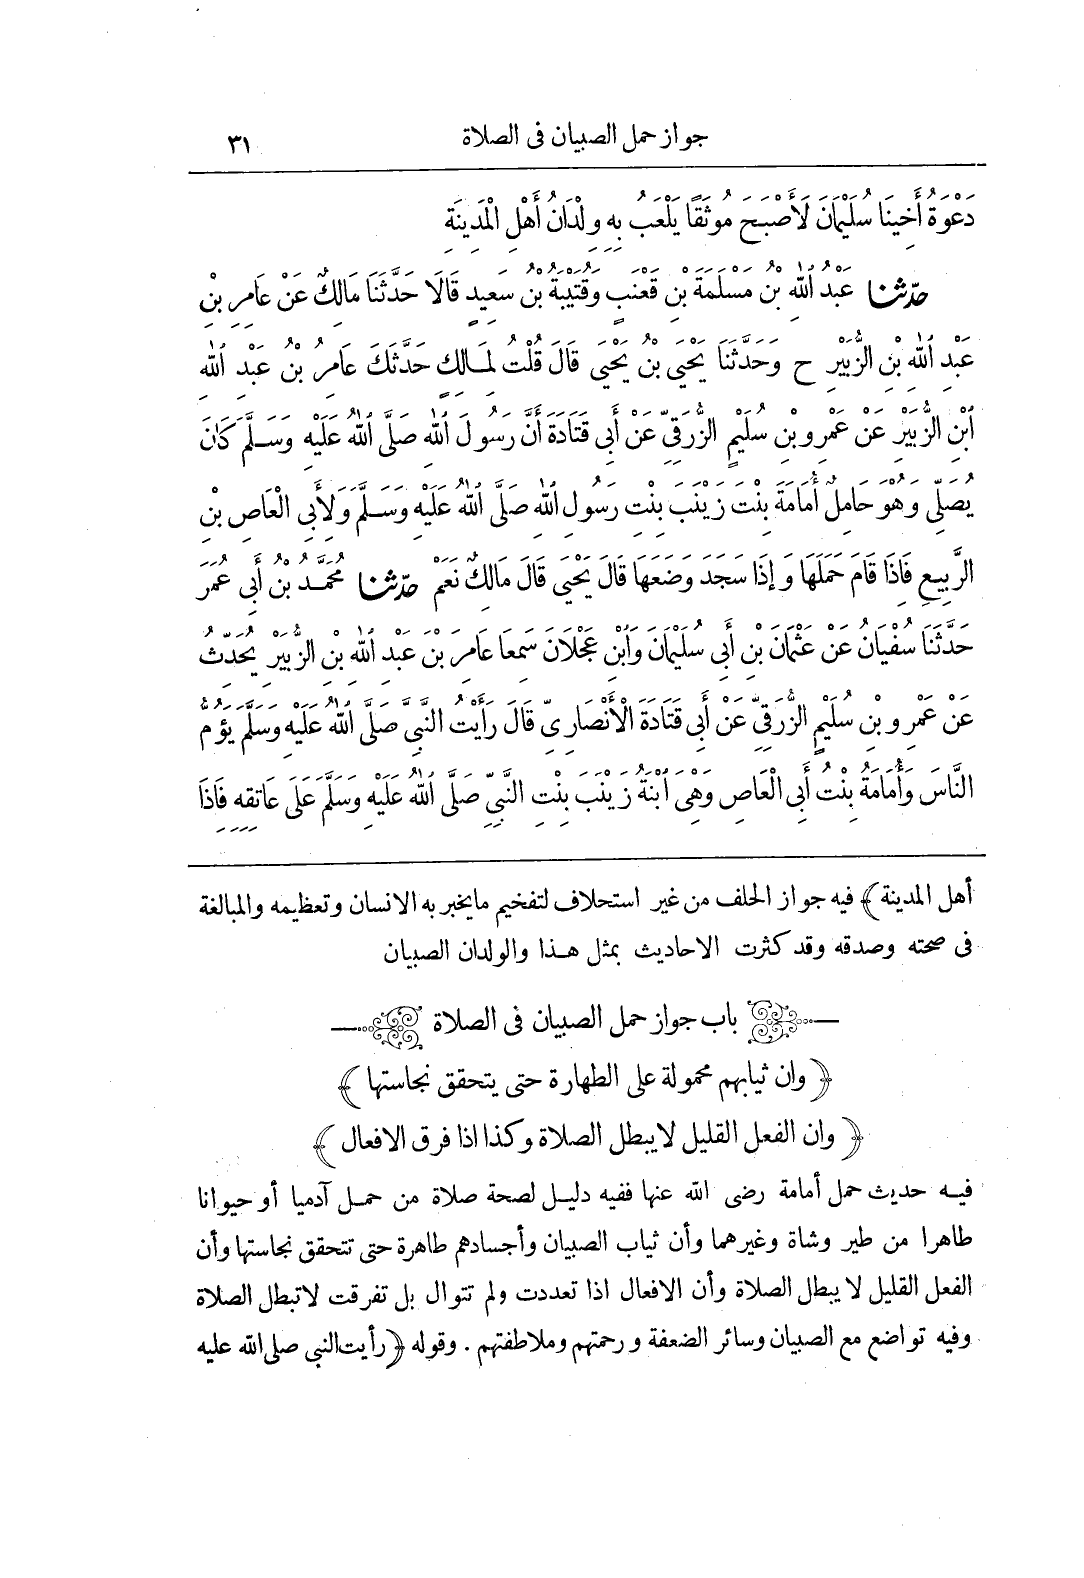 جواز حمل الصبيان فى الصلاة ٣١
دَعْوَةُ أَخِينَا سُلَيْمَانَ لَأَصْبَحَ مُوثَقًا يَلْعَبُ بِهِ وِلْدَانُ أَهْلِ الْمَدِينَةِ
حَدَّثَنَا عَبْدُ اللّٰهِ بْنُ مَسْلَمَةَ بْنِ قَعْنَبٍ وَقُتَيْبَةُ بْنُ سَعِيدٍ قَالَا حَدَّثَنَا مَالِكٌ عَنْ عَامِرِ بْنِ
عَبْدِ اللّٰهِ بْنِ الزُّبَيْرِ ح وَحَدَّثَنَا يَحْيَى بْنُ يَحْيَى قَالَ قُلْتُ لِمَالِكٍ حَدَّثَكَ عَامِرُ بْنُ عَبْدِ اللّٰهِ
ابْنِ الزُّبَيْرِ عَنْ عَمْرِو بْنِ سُلَيْمٍ الزُّرَقِيِّ عَنْ أَبِي قَتَادَةَ أَنَّ رَسُولَ اللّٰهِ صَلَّى اللّٰهُ عَلَيْهِ وَسَلَّمَ كَانَ
يُصَلِّي وَهُوَ حَامِلٌ أُمَامَةَ بِنْتَ زَيْنَبَ بِنْتِ رَسُولِ اللّٰهِ صَلَّى اللّٰهُ عَلَيْهِ وَسَلَّمَ وَلِأَبِي الْعَاصِ بْنِ
الرَّبِيعِ فَإِذَا قَامَ حَمَلَهَا وَإِذَا سَجَدَ وَضَعَهَا قَالَ يَحْيَى قَالَ مَالِكٌ نَعَمْ حَدَّثَنَا مُحَمَّدُ بْنُ أَبِي عُمَرَ
حَدَّثَنَا سُفْيَانُ عَنْ عُثْمَانَ بْنِ أَبِي سُلَيْمَانَ وَابْنِ عَجْلَانَ سَمِعَا عَامِرَ بْنَ عَبْدِ اللّٰهِ بْنِ الزُّبَيْرِ يُحَدِّثُ
عَنْ عَمْرِو بْنِ سُلَيْمٍ الزُّرَقِيِّ عَنْ أَبِي قَتَادَةَ الْأَنْصَارِيِّ قَالَ رَأَيْتُ النَّبِيَّ صَلَّى اللّٰهُ عَلَيْهِ وَسَلَّمَ يَؤُمُّ
النَّاسَ وَأُمَامَةُ بِنْتُ أَبِي الْعَاصِ وَهْيَ ابْنَةُ زَيْنَبَ بِنْتِ النَّبِيِّ صَلَّى اللّٰهُ عَلَيْهِ وَسَلَّمَ عَلَى عَاتِقِهِ فَإِذَا
أهل المدينة﴾ فيه جواز الحلف من غير استحلاف لتفخيم مايخبر به الانسان وتعظيمه والمبالغة
فى صحته وصدقه وقد كثرت الاحاديث بمثل هذا والولدان الصبيان
باب جواز حمل الصبيان فى الصلاة
﴿ وان ثيابهم محمولة على الطهارة حتى يتحقق نجاستها ﴾
﴿ وان الفعل القليل لايبطل الصلاة وكذا اذا فرق الافعال ﴾
فيه حديث حمل أمامة رضى الله عنها ففيه دليل لصحة صلاة من حمل آدميا أو حيوانا
طاهرا من طير وشاة وغيرهما وأن ثياب الصبيان وأجسادهم طاهرة حتى تتحقق نجاستها وأن
الفعل القليل لا يبطل الصلاة وأن الافعال اذا تعددت ولم تتوال بل تفرقت لاتبطل الصلاة
وفيه تواضع مع الصبيان وسائر الضعفة ورحمتهم وملاطفتهم . وقوله ﴿رأيت النبى صلى الله عليه